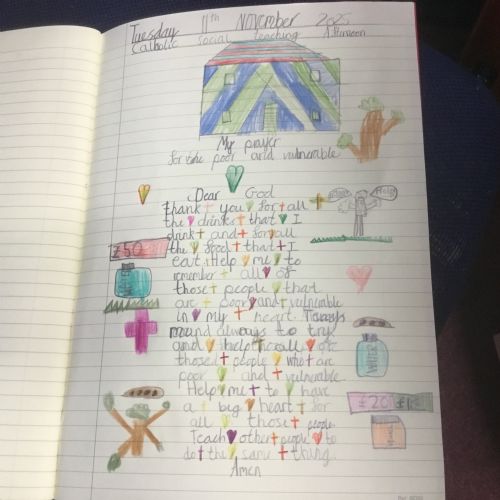 Tuesday 11th November 2025
Catholic social teaching Afternoon
My prayer
for the poor and vulnerable
Dear God
thank you for all
the drinks that I
drink and for all
the food that I
eat. Help me to
remember all of
those people that
are poor and vulnerable
in my heart.
mind always to try
and help all of
those people who are
poor and vulnerable
Help me to have
a big heart for
all those people
Teach other people to
do the same thing
Amen
Help
£50
WATER
£20